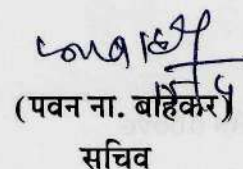 (पवन ना. बाहेकर)
सचिव